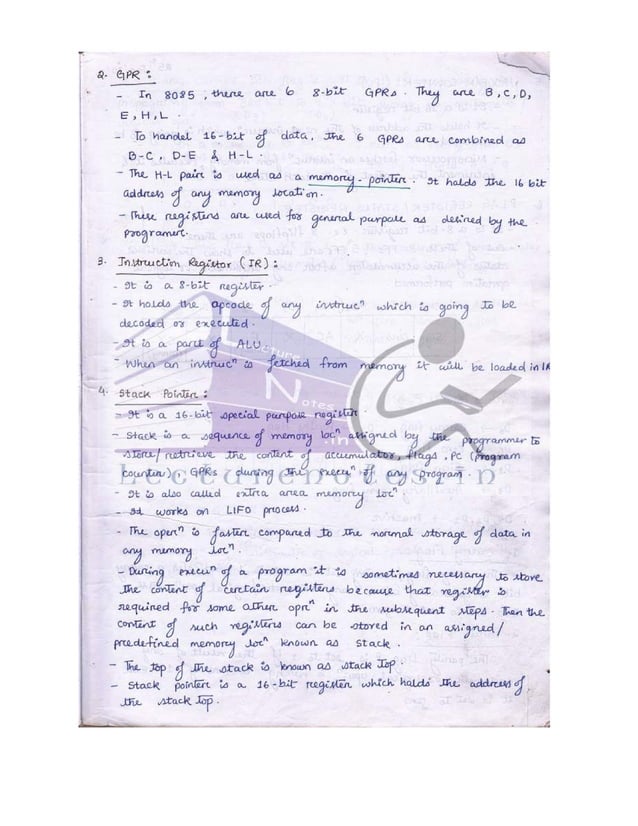 2. GPR :
- In 8085, there are 6 8-bit GPRs. They are B, C, D,
E, H, L.
- To handel 16-bit of data, the 6 GPRs are combined as
B-C, D-E & H-L.
- The H-L pair is used as a memory-pointer. It holds the 16 bit
address of any memory location.
- These registers are used for general purpose as desired by the
programer.
3. Instruction Register (IR) :
- It is a 8-bit register.
- It holds the opcode of any instrucⁿ which is going to be
decoded or executed.
- It is a part of ALU
- When an instrucⁿ is fetched from memory it will be loaded in IR
4. Stack Pointer :
- It is a 16-bit special purpose register.
- Stack is a sequence of memory locⁿ assigned by the programmer to
store/retrieve the content of accumulator, flags, PC (program
counter), GPRs during the execuⁿ of any program.
- It is also called extra area memory locⁿ.
- It works on LIFO process.
- The operⁿ is faster compared to the normal storage of data in
any memory locⁿ.
- During execuⁿ of a program it is sometimes necessary to store
the content of certain registers because that register is
required for some other oprⁿ in the subsequent steps. Then the
content of such registers can be stored in an assigned/
predefined memory locⁿ known as stack.
- The top of the stack is known as stack top.
- Stack pointer is a 16-bit register which holds the address of
the stack top.
Lecture
Notes
.in
Lecturenotes.in